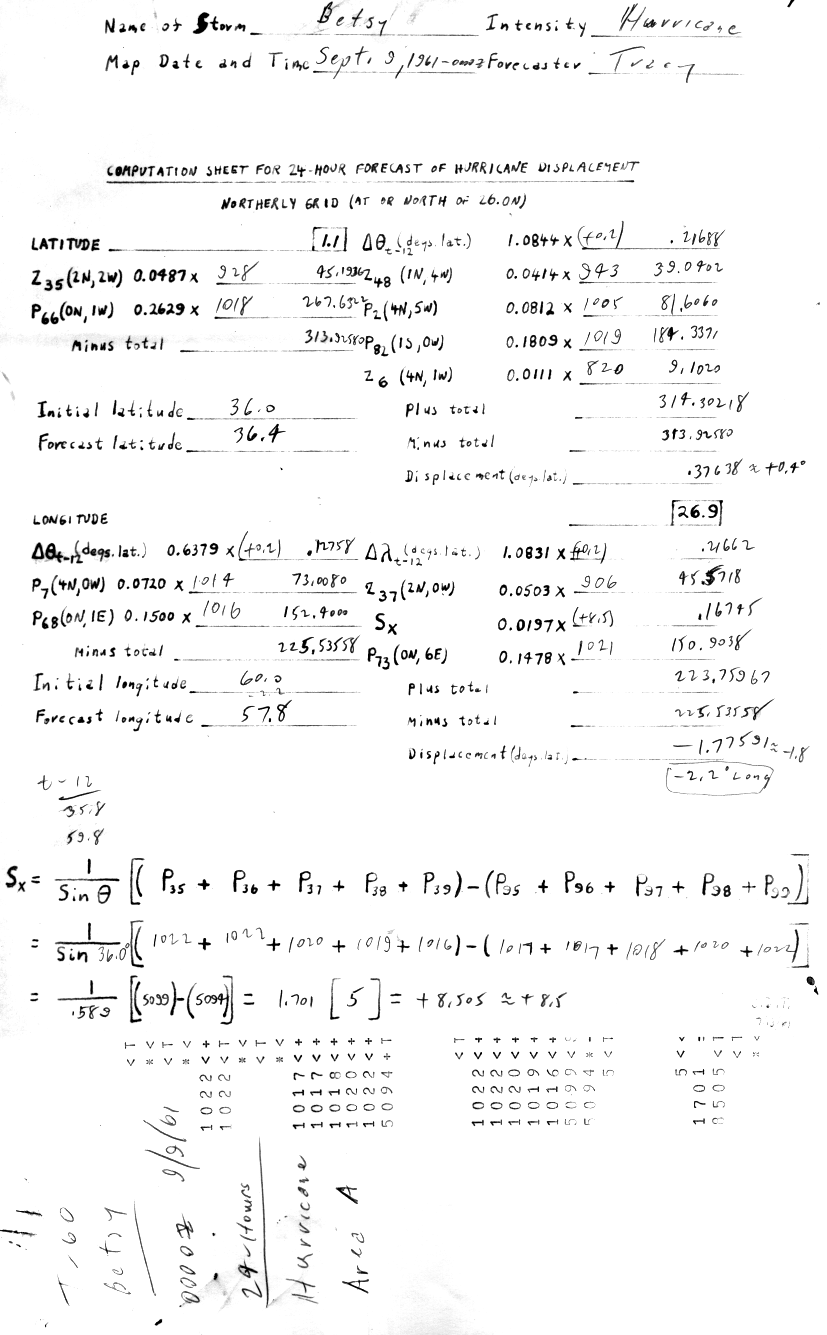 Name of Storm Betsy Intensity Hurricane
Map Date and Time Sept. 9, 1961-0000z Forecaster Tracy
COMPUTATION SHEET FOR 24-HOUR FORECAST OF HURRICANE DISPLACEMENT
NORTHERLY GRID (AT OR NORTH OF 26.0N)
LATITUDE 1.1 Δθt-12 (degs. lat.) 1.0844 x (+0.2) .21688
Z35 (2N, 2W) 0.0487 x 928 45.1936 Z48 (1N, 4W) 0.0414 x 943 39.0402
P66 (0N, 1W) 0.2629 x 1018 267.6322 P2 (4N, 5W) 0.0812 x 1005 81.6060
Minus total 313.92580 P82 (1S, 0W) 0.1809 x 1019 184.3371
Z6 (4N, 1W) 0.0111 x 820 9.1020
Initial latitude 36.0 Plus total 314.30218
Forecast latitude 36.4 Minus total 313.92580
Displacement (degs. lat.) .37638 ≈ +0.4°
LONGITUDE 26.9
Δθt-12 (degs. lat.) 0.6379 x (+0.2) .12758 Δλt-12 (degs. lat.) 1.0831 x (+0.2) .21662
P7 (4N, 0W) 0.0720 x 1014 73.0080 Z37 (2N, 0W) 0.0503 x 906 45.5718
P68 (0N, 1E) 0.1500 x 1016 152.4000 Sx 0.0197 x (+8.5) .16745
Minus total 225.53558 P73 (0N, 6E) 0.1478 x 1021 150.9038
Initial longitude 60.0 Plus total 223.75967
-2.2
Forecast longitude 57.8 Minus total 225.53558
Displacement (degs. lat.) -1.77591 ≈ -1.8
-2.2° Long
t-12
35.8
59.8
Sx = 1/Sin θ [(P35 + P36 + P37 + P38 + P39) - (P95 + P96 + P97 + P98 + P99)]
= 1/Sin 36.0° [(1022 + 1022 + 1020 + 1019 + 1016) - (1017 + 1017 + 1018 + 1020 + 1022)]
= 1/.589 [(5099) - (5094)] = 1.701 [5] = +8.505 ≈ +8.5
1022 <+
1022 <T
1017 <+
1017 <+
1018 <+
1020 <+
1022 <+
5094 +T
1022 <+
1022 <+
1020 <+
1019 <+
1016 <+
5099 <
5094 * -
5 <T
5 <
1701
8505 <T
T-60
Betsy
9/9/61
0000Z
24-Hours
Hurricane
Area A